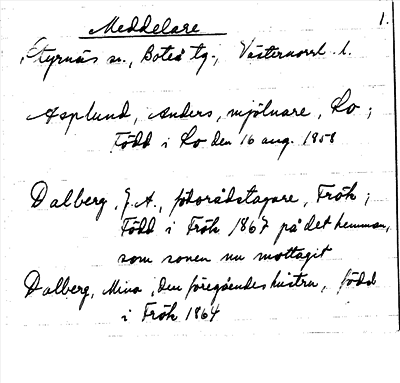 Meddelare
1.
Styrnäs sn., Boteå tg., Västernorrl. l.
Asplund, Anders, mjölnare, Lo;
Född i Lo den 16 aug. 1858
Dalberg, J. A., förrådstagare, Frök;
Född i Frök 1867 på det hemman,
som sonen nu mottagit
Dalberg, Mina, den föregåendes hustru, född
i Frök 1864